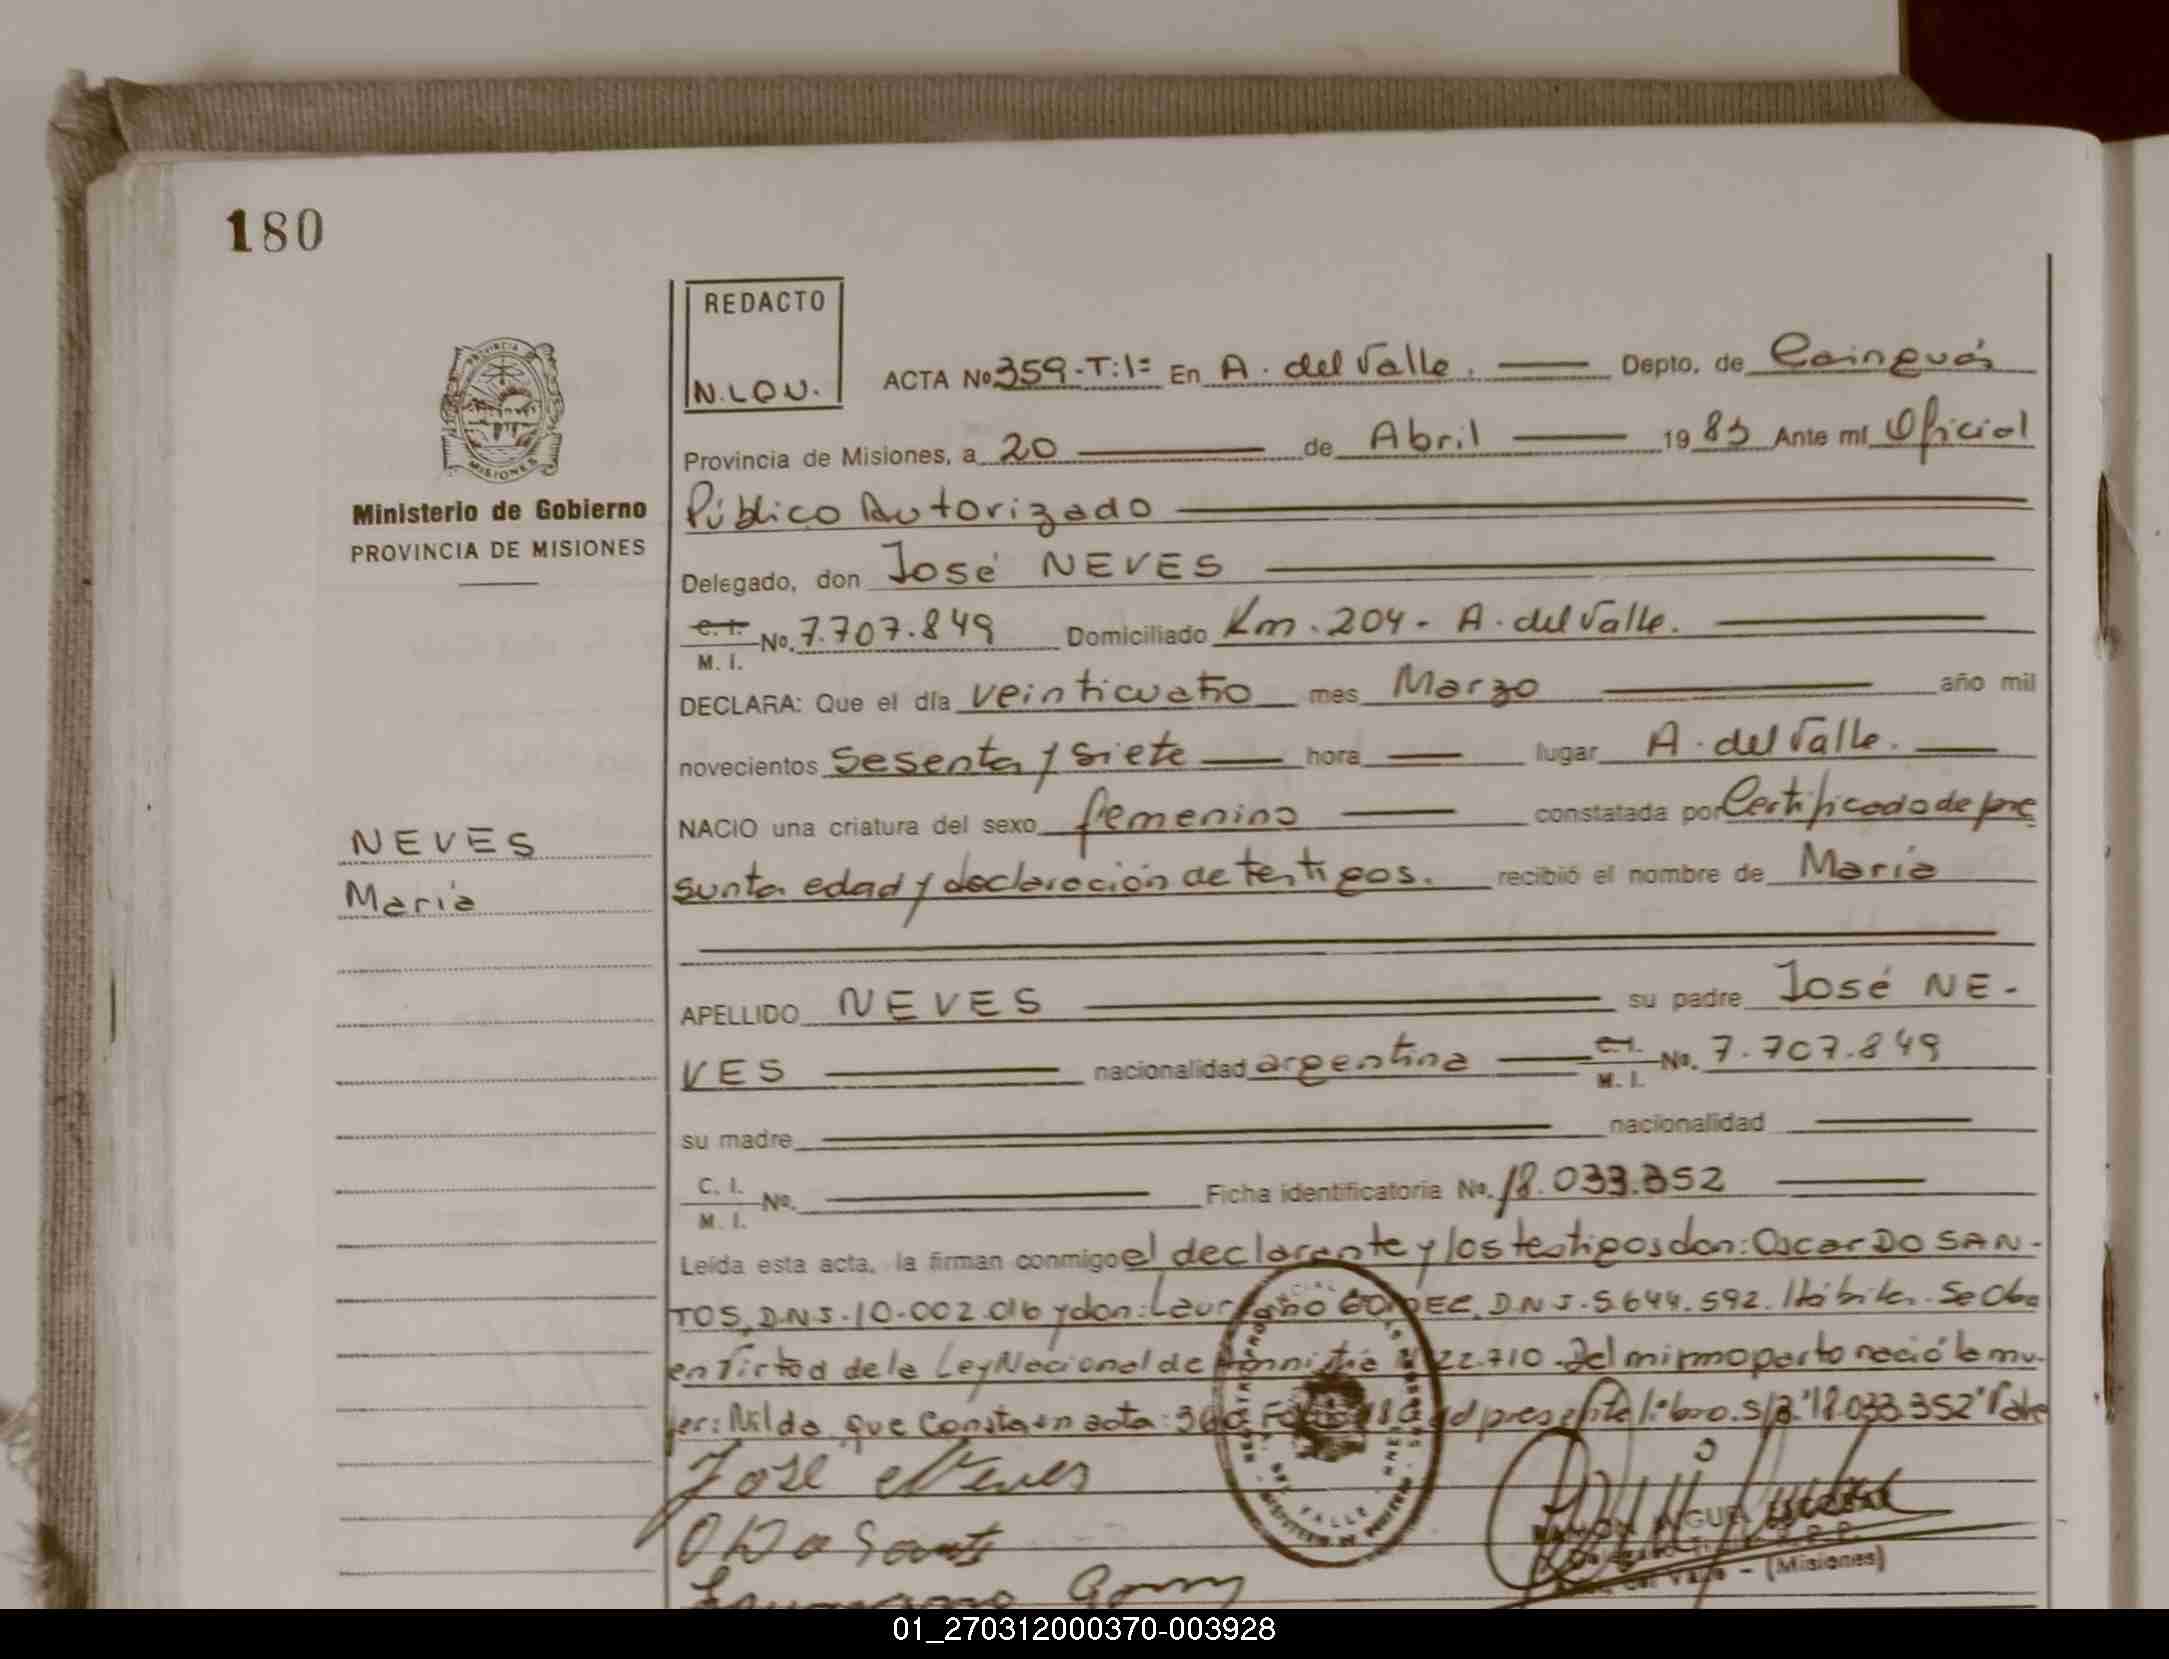 180
REDACTO
N.LOV.
ACTA Nº 359-T:1º En A. del Valle. Depto. de Cainguás
Provincia de Misiones, a 20 de Abril 1983 Ante mí Oficial
Ministerio de Gobierno
Público Autorizado
PROVINCIA DE MISIONES
Delegado, don José NEVES
C. I.
M. I. Nº. 7.707.849 Domiciliado Km. 204 - A. del Valle.
DECLARA: Que el día veinticuatro mes Marzo año mil
novecientos sesenta y siete hora lugar A. del Valle.
NACIO una criatura del sexo femenino constatada por Certificado de pre
NEVES
María
sunta edad y declaración de testigos. recibió el nombre de María
APELLIDO NEVES su padre José NE-
VES nacionalidad argentina C.I.
M. I. Nº. 7.707.849
su madre nacionalidad
C. I.
M. I. Nº. Ficha identificatoria Nº. 18.033.352
Leída esta acta, la firman conmigo el declarante y los testigos don: Oscar DO SAN-
TOS, D.N.I. 10.002.016 y don: Laureano D.N.I. 5.644.592. Hábiles. Se
en Virtud de la Ley Nacional de Amnistía 22.710. Del mismo parto nació la mu-
jer: Nilda que Consta en acta: 360 del presente libro. S/R "18.033.352" Vale
José Neves
O Do Sants
(Misiones)
01_270312000370-003928